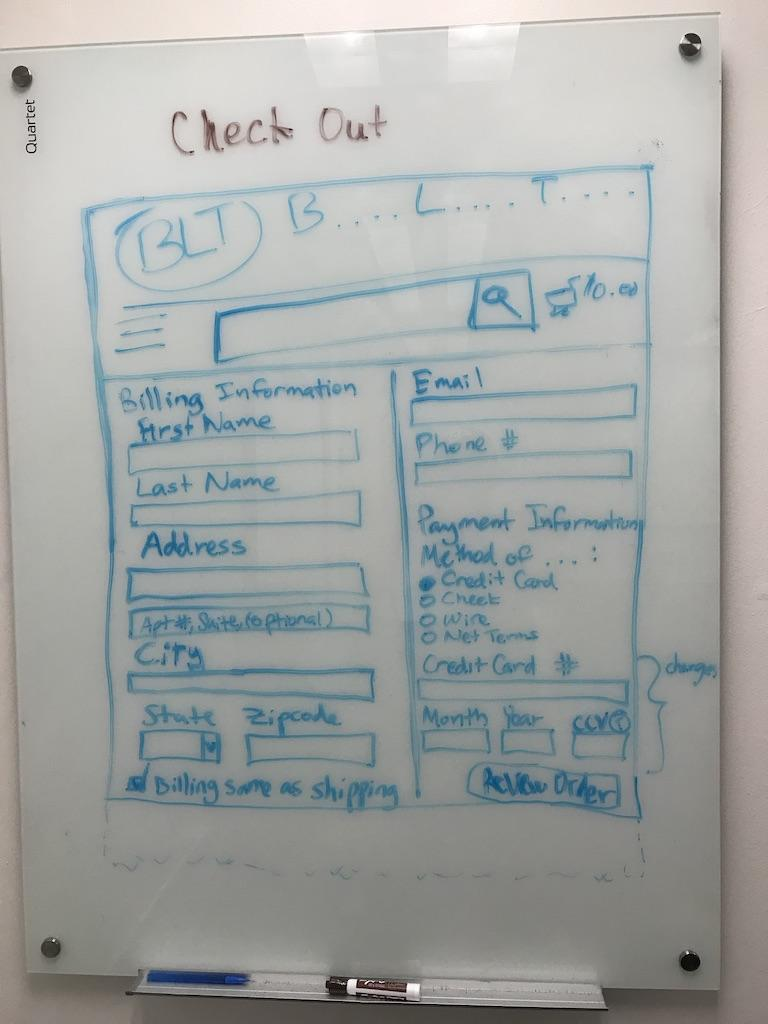 Quartet
Check Out
BLT B.... L.... T....
Billing Information
First Name
Last Name
Address
Apt #, Suite, (optional)
City
State Zipcode
Billing same as shipping
Email
Phone #
Payment Information
Method of ... :
Credit Card
Check
Wire
Net Terms
Credit Card #
changes
Month Year CCV
Review Order